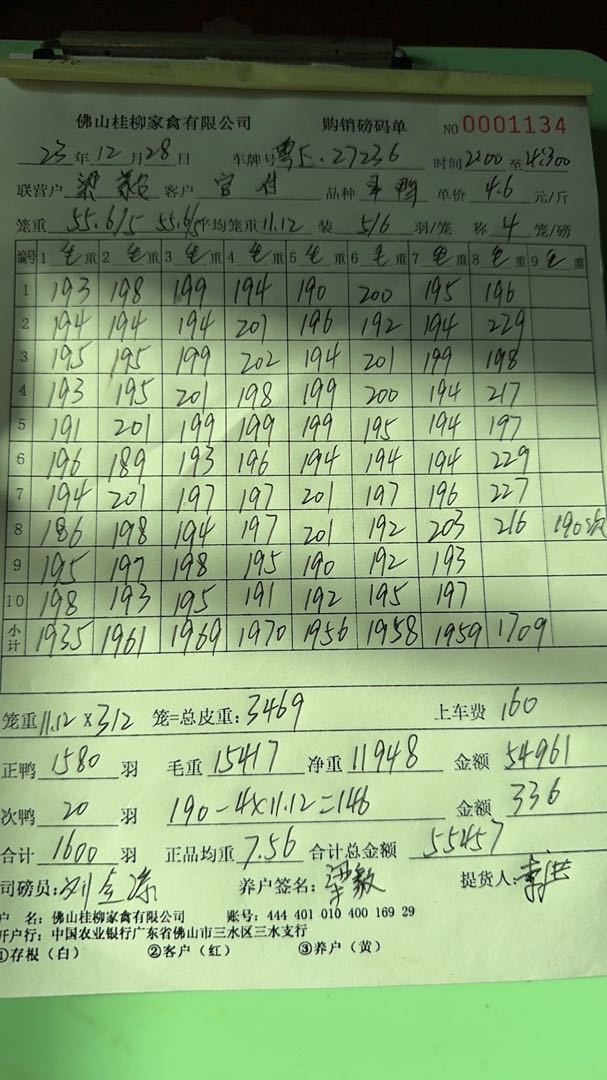 佛山桂柳家禽有限公司 购销磅码单 NO 0001134
23年12月28日 车牌号粤E.27236 时间2:00至4:300
联营户 梁毅 客户 官付 品种 半鸭 单价 4.6 元/斤
笼重 55.6/5 55.6/5 平均笼重 11.12 装 5/6 羽/笼 称 4 笼/磅
编号 1毛重 2毛重 3毛重 4毛重 5毛重 6毛重 7毛重 8毛重 9毛重
1 193 198 199 194 190 200 195 196
2 194 194 194 201 196 192 194 229
3 195 195 199 202 194 201 199 198
4 193 195 201 198 199 200 194 217
5 191 201 199 199 199 195 194 197
6 196 189 193 196 194 194 194 229
7 194 201 197 197 201 197 196 227
8 186 198 194 197 201 192 203 216 190次
9 195 197 198 195 190 192 193
10 198 193 195 191 192 195 197
小计 1935 1961 1969 1970 1956 1958 1959 1709
笼重 11.12 x 312 笼=总皮重: 3469 上车费 160
正鸭 1580 羽 毛重 15417 净重 11948 金额 54961
次鸭 20 羽 190-4x11.12=146 金额 336
合计 1600 羽 正品均重 7.56 合计总金额 55457
司磅员: 养户签名: 梁毅 提货人:
户 名: 佛山桂柳家禽有限公司 账号: 444 401 010 400 169 29
开户行: 中国农业银行广东省佛山市三水区三水支行
①存根（白） ②客户（红） ③养户（黄）